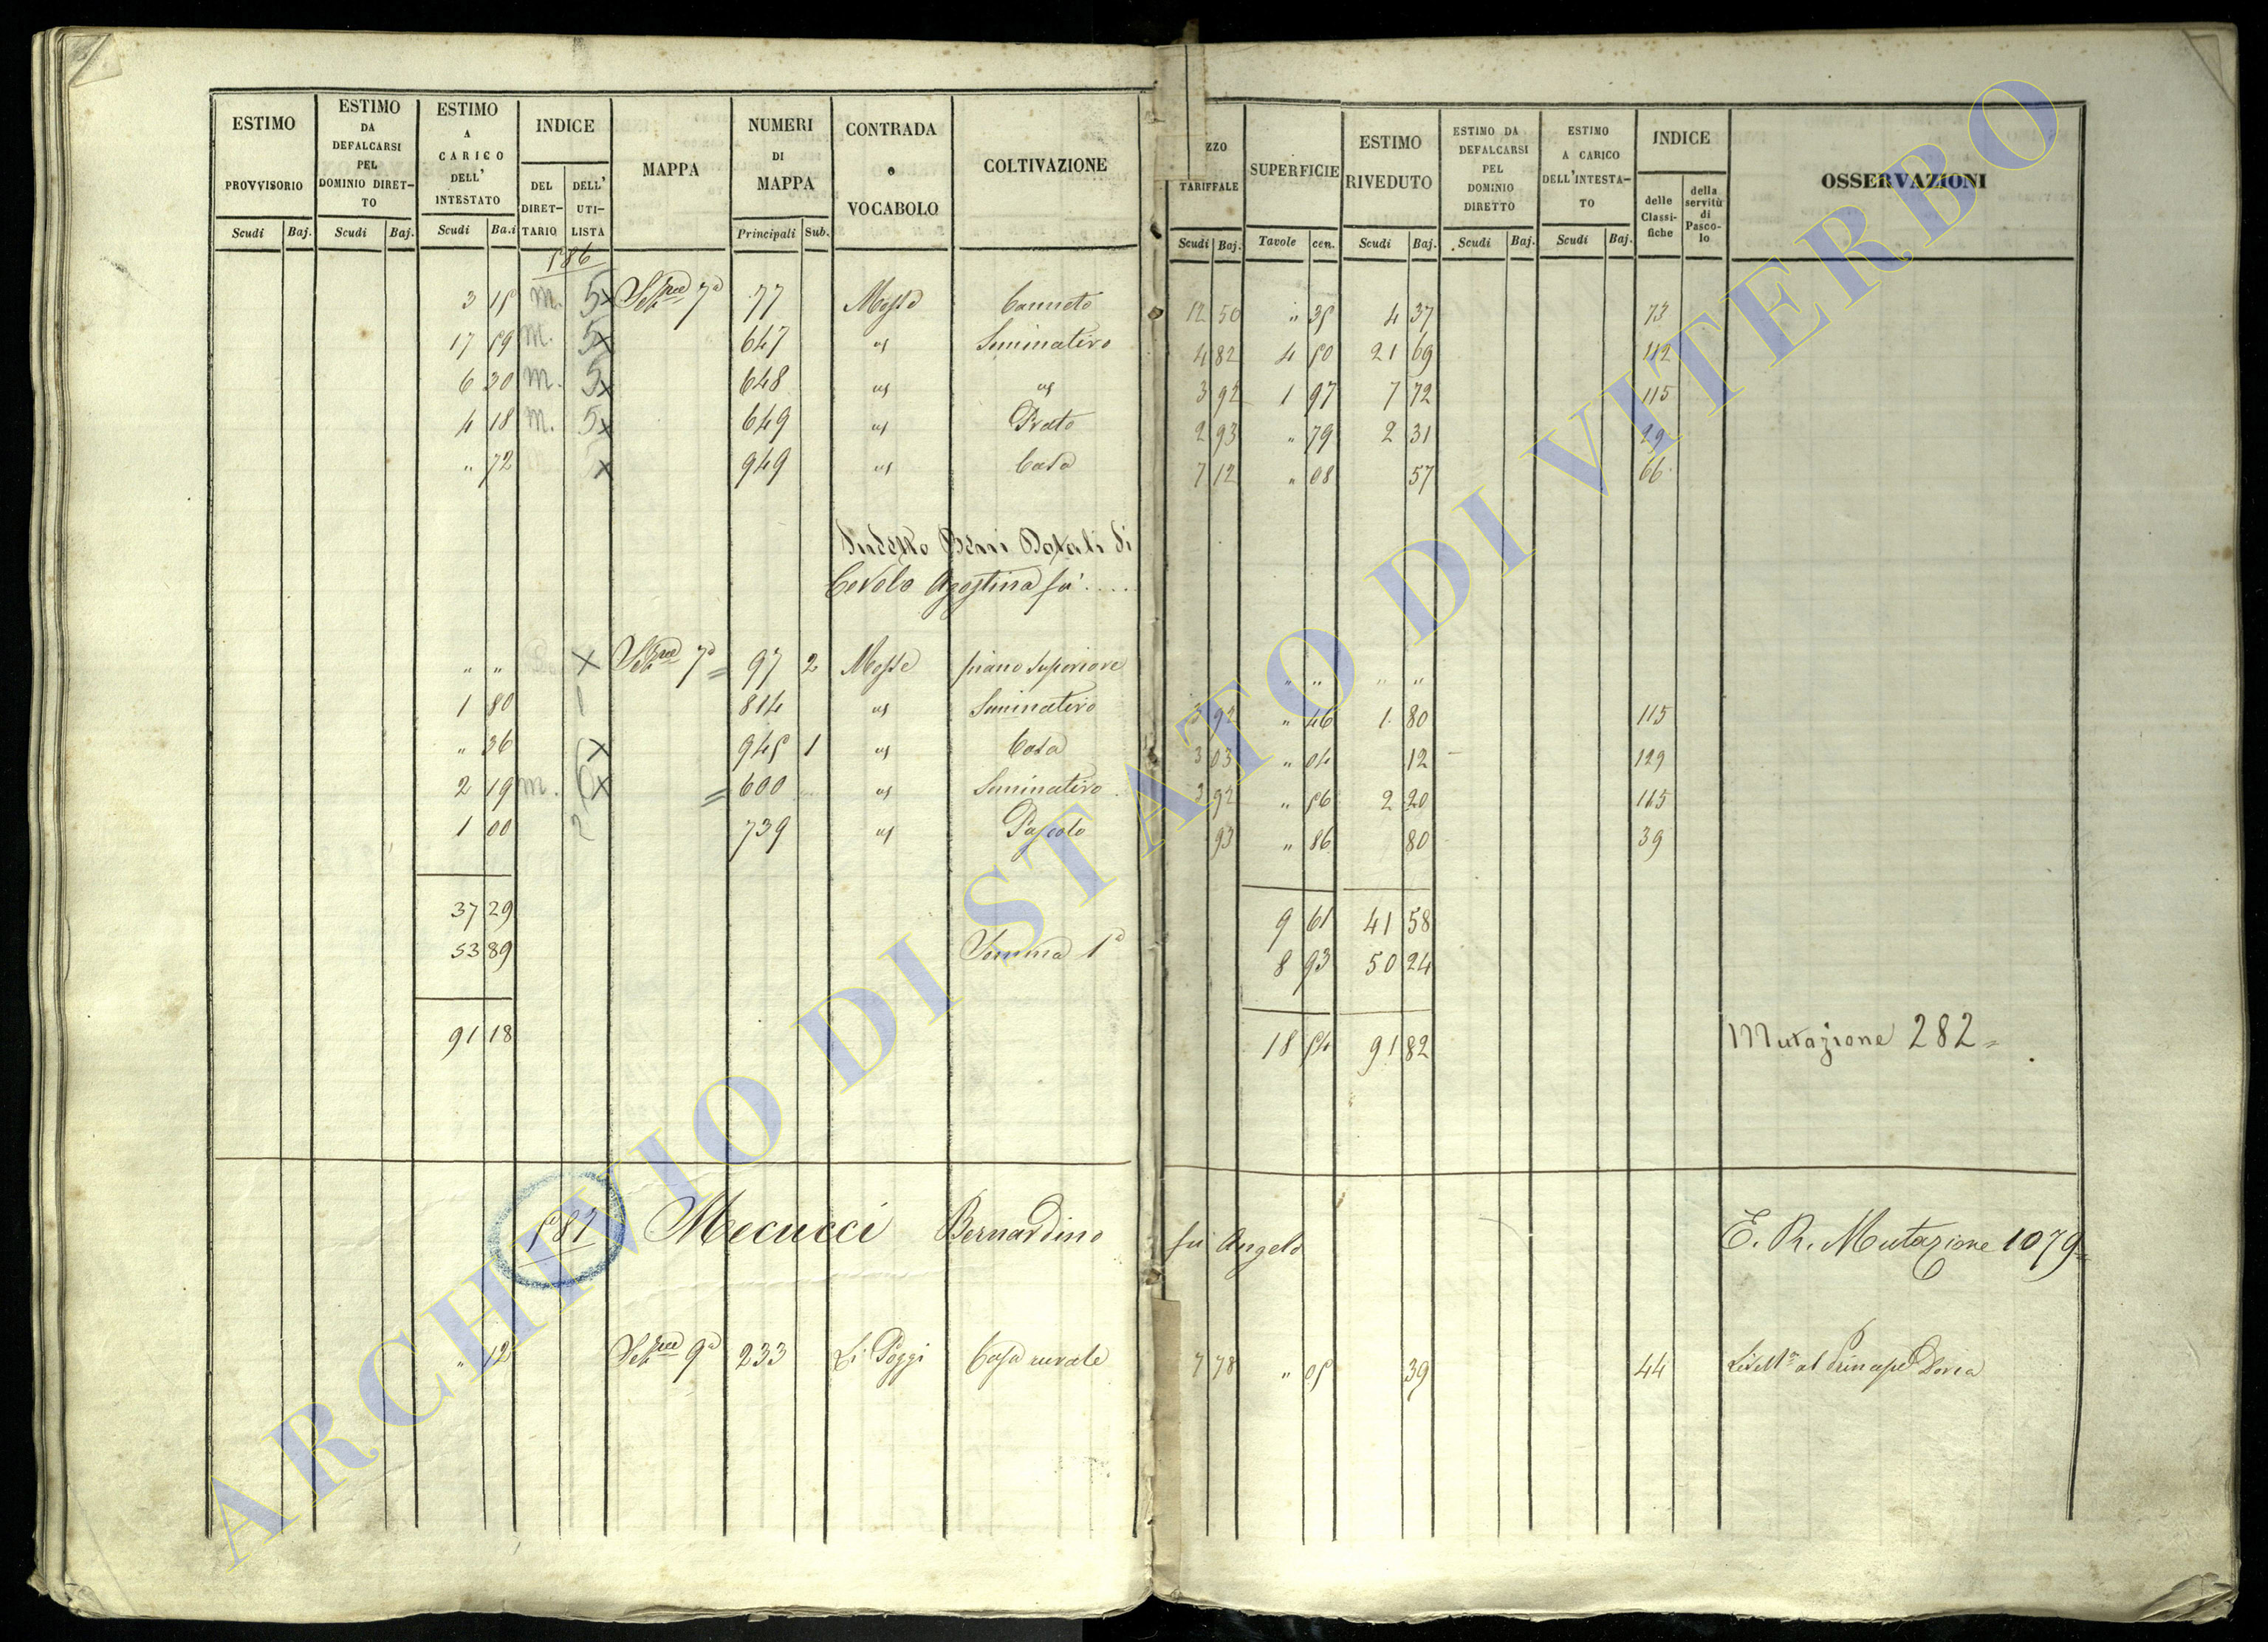 ESTIMO PROVVISORIO
Scudi Baj.
ESTIMO DA DEFALCARSI PEL DOMINIO DIRET-TO
Scudi Baj.
ESTIMO A CARICO DELL' INTESTATO
Scudi Ba.i
INDICE
DEL DIRET-TARIO
DELL' UTI-LISTA
MAPPA
NUMERI DI MAPPA
Principali Sub.
CONTRADA o VOCABOLO
COLTIVAZIONE
ZZO TARIFFALE
Scudi Baj.
SUPERFICIE
Tavole cen.
ESTIMO RIVEDUTO
Scudi Baj.
ESTIMO DA DEFALCARSI PEL DOMINIO DIRETTO
Scudi Baj.
ESTIMO A CARICO DELL'INTESTA-TO
Scudi Baj.
INDICE
delle Classi-fiche
della servitù di Pasco-lo
OSSERVAZIONI
586
3 15 m. 5x 7a 77 Mosse Canneto 12 50 " 35 4 37 73
17 59 m. 5x 647 Seminativo 4 82 4 50 21 69 112
6 30 m. 5x 648 3 92 1 97 7 72 115
4 18 m. 5x 649 Prato 2 93 " 79 2 31 29
" 72 x 949 Casa 7 12 " 08 57 66
Sudetto Beni Dotali di
Agostina fu ....
" " x 7a = 97 2 Mosse piano superiore " " " "
1 80 1 814 Seminativo 3 92 " 46 1 80 115
" 36 x 945 1 Casa 3 03 " 04 12 129
2 19 m. 6x = 600 Seminativo 3 92 " 56 2 20 115
1 00 2 739 Pascolo 93 " 86 80 39
37 29 9 61 41 58
53 89 Somma 1a 8 93 50 24
91 18 18 54 91 82 Mutazione 282=
587 Mecucci Bernardino fu Angelo E. R. Mutazione 1079=
" 12 9a 233 Li Poggi Casa rurale 7 78 " 05 39 44 al Principe Doria
ARCHIVIO DI STATO DI VITERBO